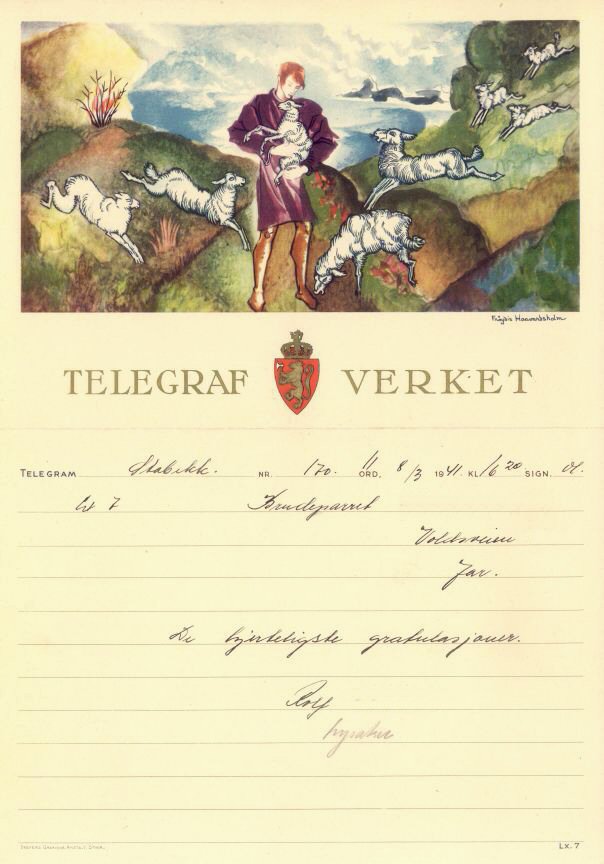 Frøydis Haavardsholm
TELEGRAF VERKET
TELEGRAM Stabekk. NR. 170. 11 ORD, 8/3 1941 KL 16 20 SIGN.
Lx 7 Brudeparret
Voldsveien
Jar.
De hjerteligste gratulasjoner.
Rolf
LX. 7